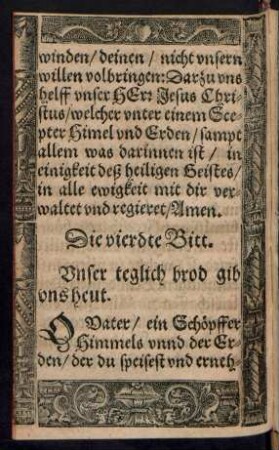 winden/ deinen / nicht vnsern
willen volbringen: Darzu vns
helff vnser HErꝛ Jesus Chri-
stus/ welcher vnter einem Sce-
pter Himel vnd Erden / sampt
allem was darinnen ist / in
einigkeit deß heiligen Geistes/
in alle ewigkeit mit dir ver-
waltet vnd regieret/ Amen.
Die vierdte Bitt.
Vnser teglich brod gib
vns heut.
O Vater / ein Schöpffer
Himmels vnnd der Er-
den/ der du speisest vnd erneh-